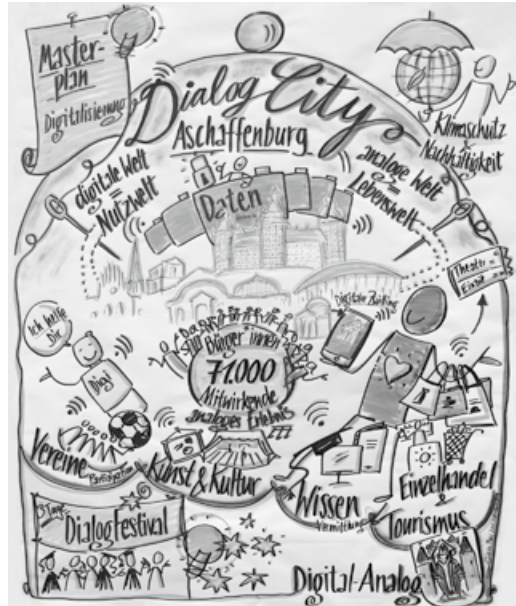 Master-
plan
Digitalisierung
Dialog City
Aschaffenburg
Klimaschutz
&
Nachhaltigkeit
digitale Welt
=
Nutzwelt
Daten
analoge Welt
=
Lebenswelt
Theater
Digitale Zwilling
Ich helfe
Dir
Digi
Bürger:innen
71.000
Mitwirkende
analoges Erlebnis
Vereine
Partizipation
Kunst & Kultur
Wissen
Vermittlung
Einzelhandel
&
Tourismus
3 Tage
DialogFestival
Digital-Analog